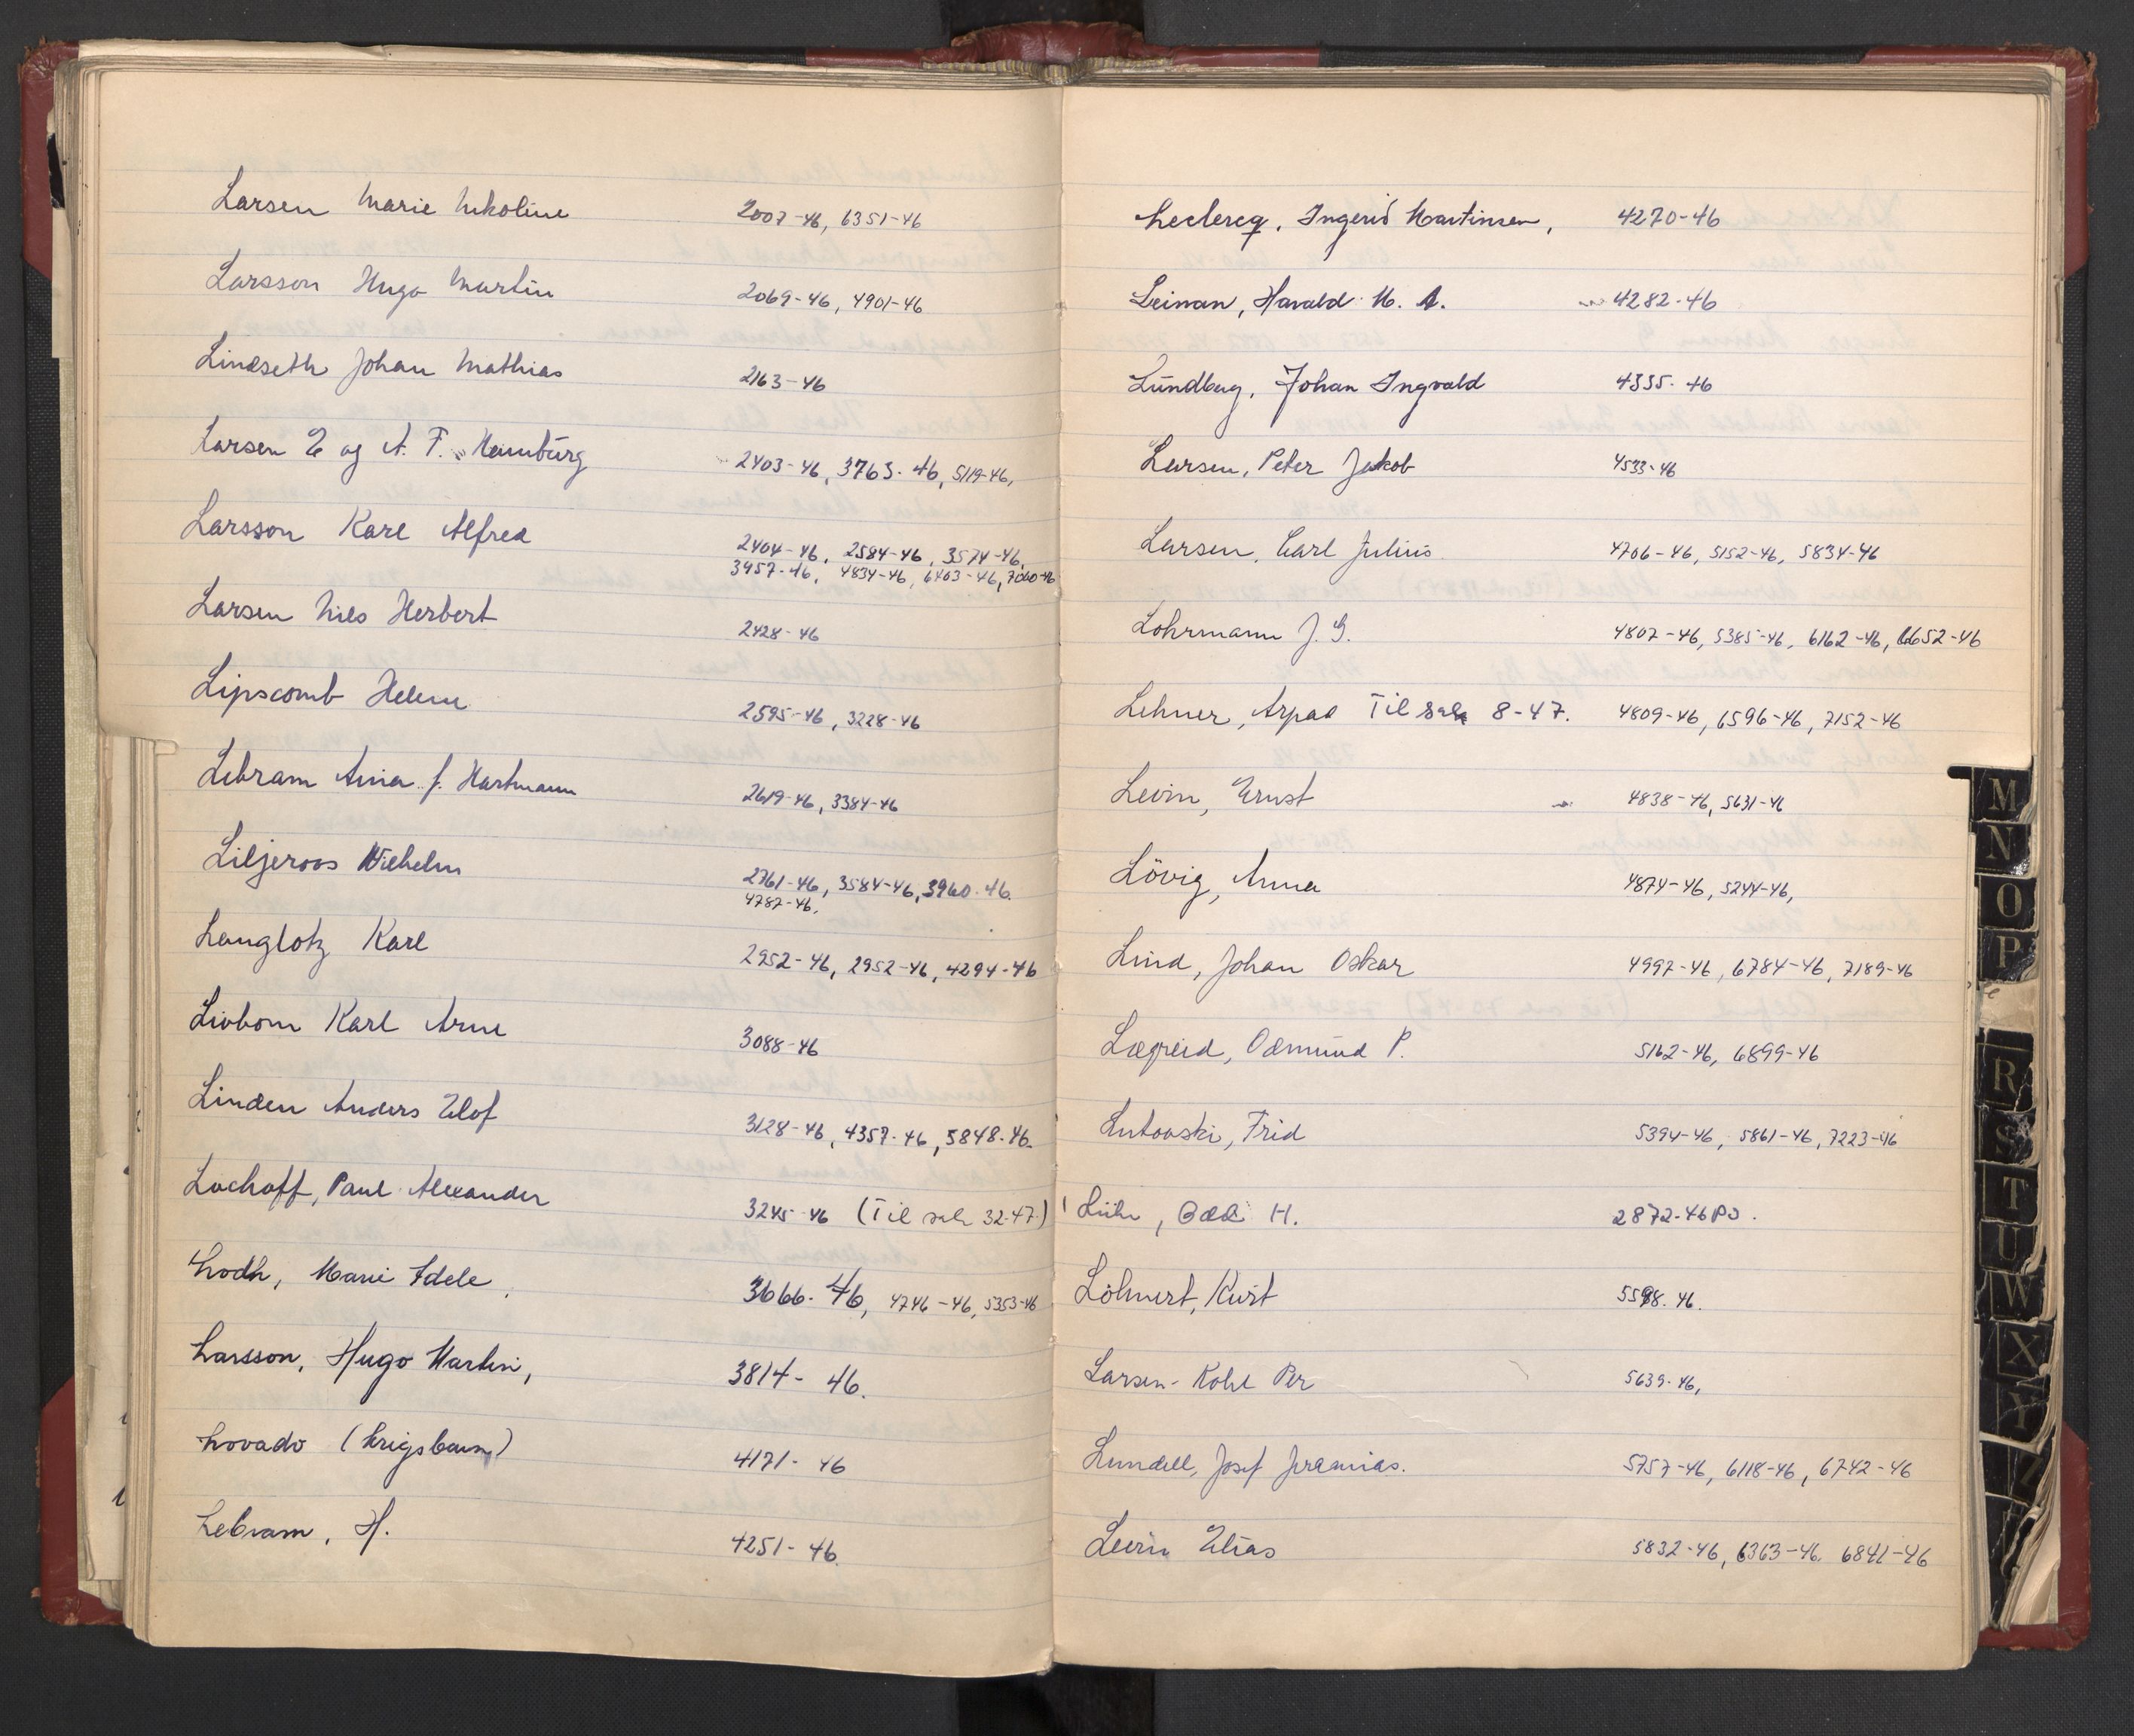 Larsen Marie Nikoline 2007-46, 6351-46
Larsson Hugo Martin 2069-46, 4901-46
Lindseth Johan Mathias 2163-46
Larsen E og A. F. Hamburg 2403-46, 3763-46, 5119-46,
Larsson Karl Alfred 2404-46, 2584-46, 3574-46,
3957-46, 4834-46, 6403-46, 7060-46
Larsen Niels Herbert 2428-46
Lipscomb Helene 2595-46, 3228-46
Lebram Anna f. Hartmann 2619-46, 3384-46
Liljeroos Wilhelm 2761-46, 3584-46, 3960-46.
4787-46,
Langlotz Karl 2952-46, 2952-46, 4294-46
Livbom Karl Arne 3088-46
Linden Anders Elof 3128-46, 4357-46, 5848-46.
Lochoff, Paul Alexander 3245-46 (Til sak 32-47)
Lodh, Marie Adele, 3666-46, 4746-46, 5353-46
Larsson, Hugo Martin, 3814-46.
Lovado (krigsbarn) 4171-46
Lebram, H. 4251-46.
Leclercq, Ingerid Martinsen, 4270-46
Leinan, Harald M. A. 4282-46
Lundberg, Johan Ingvald 4335-46
Larsen, Peter Jakob 4533-46
Larsen, Carl Julius 4706-46, 5152-46, 5834-46
Lohrmann J. G. 4807-46, 5385-46, 6162-46, 6652-46
Lehner, Arpad Til sak 8-47. 4809-46, 6596-46, 7152-46
Levin, Ernst 4838-46, 5631-46
Lövig, Anna 4874-46, 5244-46,
Lind, Johan Oskar 4997-46, 6784-46, 7189-46
Lægreid, Odmund P. 5162-46, 6899-46
Lutowski, Frid 5394-46, 5861-46, 7223-46
Lühr, Odd H. 2872-46 PS.
Löhnert, Kurt 46.
Larsen-Kohl Per 5639-46,
Lundell, Josef Jeramias. 5757-46, 6118-46, 6742-46
Levin Elias 5832-46, 6363-46 6841-46
M
N
O
P
R
S
T
U
W
X
Y
Z